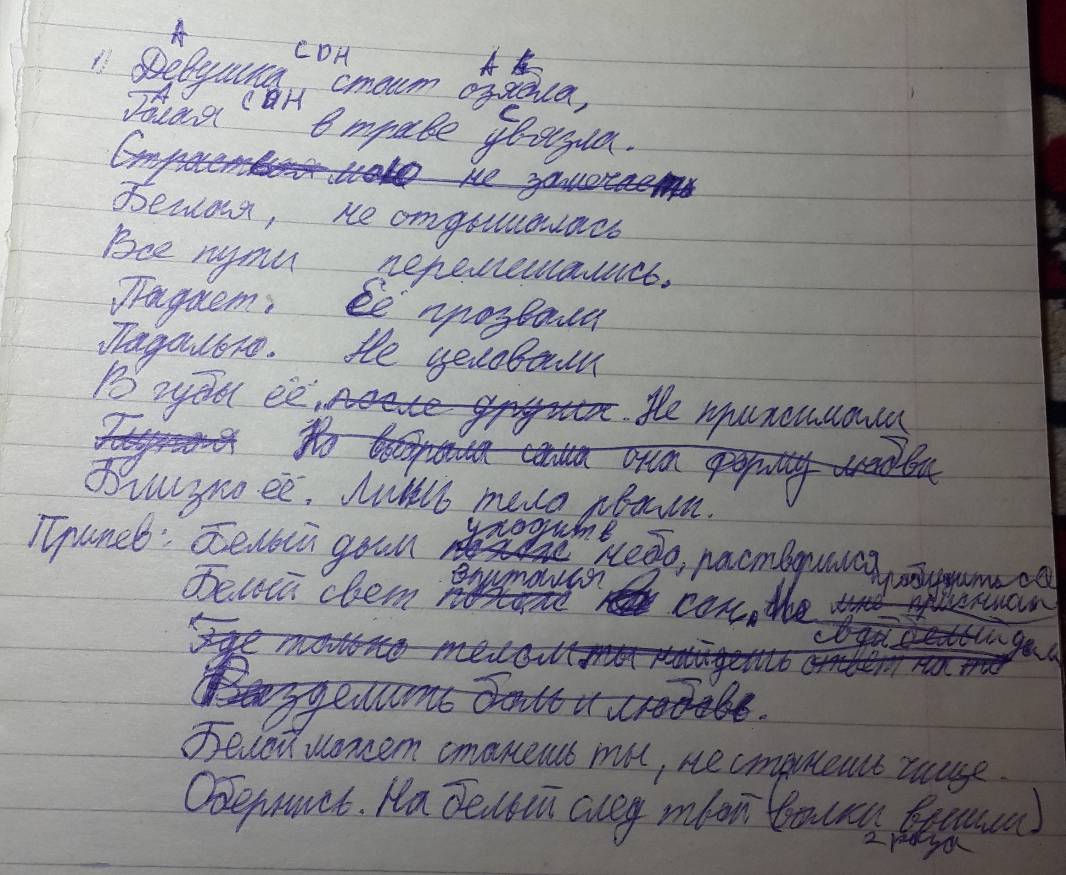 А СDH А
1) Девушка стоит озябла,
А СDH С
Голая в траве увязла.
Страстная мою не замечаеть
Беглая, не отдышалась
Все пути перемешались.
Падает. Её прозвали
Падалью. Не целовали
В губы её, после других. Не прижимали
Но выбрала сама она форму любви
Близко её. Лишь тело рвали.
уходит в
Припев: Белый дым похож небо, растворился
впитался пробудиться
Белый свет похож на сон, не мне приснился
свой белый дым
Где только телом ты найдешь ответ на то
Разделить боль и любовь.
Белой может станешь ты, не станешь чище.
Обернись. На белый след твой (волки вышли)
2 раза